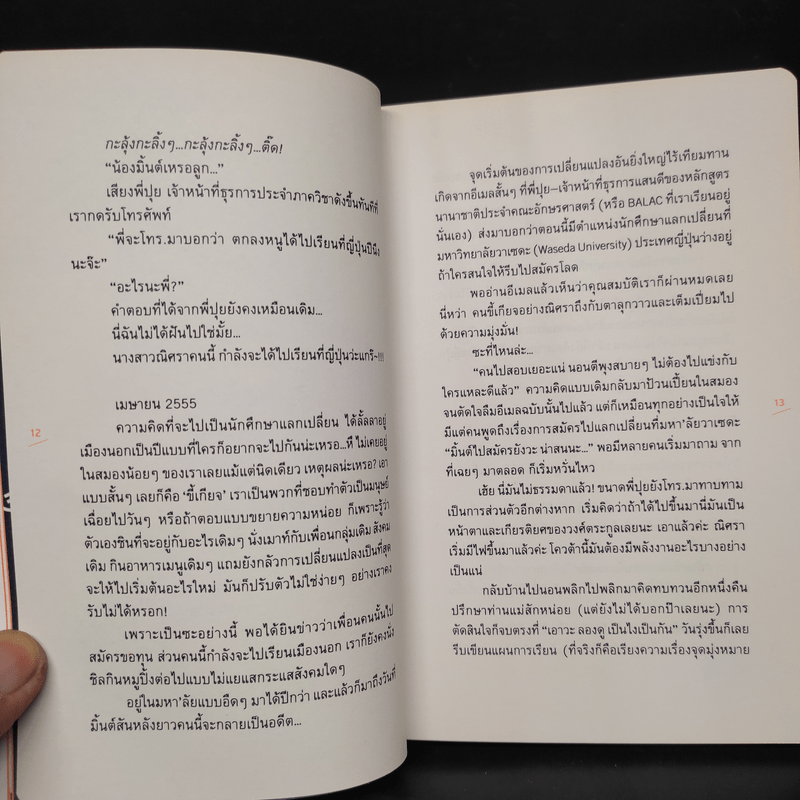 กะลุ้งกะลิ้งๆ...กะลุ้งกะลิ้งๆ...ติ๊ด!
“น้องมิ้นต์เหรอลูก...”
เสียงพี่ปุย เจ้าหน้าที่ธุรการประจำภาควิชาดังขึ้นทันทีที่
เรากดรับโทรศัพท์
“พี่จะโทร.มาบอกว่า ตกลงหนูได้ไปเรียนที่ญี่ปุ่นปีนึง
นะจ๊ะ”
“อะไรนะพี่?”
คำตอบที่ได้จากพี่ปุยยังคงเหมือนเดิม...
นี่ฉันไม่ได้ฝันไปใช่มั้ย...
นางสาวณิศราคนนี้ กำลังจะได้ไปเรียนที่ญี่ปุ่นว่ะแกร๊~!!!!
เมษายน 2555
ความคิดที่จะไปเป็นนักศึกษาแลกเปลี่ยน ได้ลั้ลลาอยู่
เมืองนอกเป็นปีแบบที่ใครก็อยากจะไปกันน่ะเหรอ...หึ ไม่เคยอยู่
ในสมองน้อยๆ ของเราเลยแม้แต่นิดเดียว เหตุผลน่ะเหรอ? เอา
แบบสั้นๆ เลยก็คือ ‘ขี้เกียจ’ เราเป็นพวกที่ชอบทำตัวเป็นมนุษย์
เฉื่อยไปวันๆ หรือถ้าตอบแบบขยายความหน่อย ก็เพราะรู้ว่า
ตัวเองชินที่จะอยู่กับอะไรเดิมๆ นั่งเมาท์กับเพื่อนกลุ่มเดิม สังคม
เดิม กินอาหารเมนูเดิมๆ แถมยังกลัวการเปลี่ยนแปลงเป็นที่สุด
จะให้ไปเริ่มต้นอะไรใหม่ มันก็ปรับตัวไม่ใช่ง่ายๆ อย่างเราคง
รับไม่ได้หรอก!
เพราะเป็นซะอย่างนี้ พอได้ยินข่าวว่าเพื่อนคนนั้นไป
สมัครขอทุน ส่วนคนนี้กำลังจะไปเรียนเมืองนอก เราก็ยังคงนั่ง
ชิลกินหมูปิ้งต่อไปแบบไม่แยแสกระแสสังคมใดๆ
อยู่ในมหา’ลัยแบบอืดๆ มาได้ปีกว่า และแล้วก็มาถึงวันที่
มิ้นต์สันหลังยาวคนนี้จะกลายเป็นอดีต...
12
จุดเริ่มต้นของการเปลี่ยนแปลงอันยิ่งใหญ่ไร้เทียมทาน
เกิดจากอีเมลสั้นๆ ที่พี่ปุย–เจ้าหน้าที่ธุรการแสนดีของหลักสูตร
นานาชาติประจำคณะอักษรศาสตร์ (หรือ BALAC ที่เราเรียนอยู่
นั่นเอง) ส่งมาบอกว่าตอนนี้มีตำแหน่งนักศึกษาแลกเปลี่ยนที่
มหาวิทยาลัยวาเซดะ (Waseda University) ประเทศญี่ปุ่นว่างอยู่
ถ้าใครสนใจให้รีบไปสมัครโลด
พออ่านอีเมลแล้วเห็นว่าคุณสมบัติเราก็ผ่านหมดเลย
นี่หว่า คนขี้เกียจอย่างณิศราถึงกับตาลุกวาวและเต็มเปี่ยมไป
ด้วยความมุ่งมั่น!
ซะที่ไหนล่ะ...
“คนไปสอบเยอะแน่ นอนตีพุงสบายๆ ไม่ต้องไปแข่งกับ
ใครแหละดีแล้ว” ความคิดแบบเดิมกลับมาป้วนเปี้ยนในสมอง
จนตัดใจลืมอีเมลฉบับนั้นไปแล้ว แต่ก็เหมือนทุกอย่างเป็นใจให้
มีแต่คนพูดถึงเรื่องการสมัครไปแลกเปลี่ยนที่มหา’ลัยวาเซดะ
“มิ้นต์ไปสมัครยังวะ น่าสนนะ...” พอมีหลายคนเริ่มมาถาม จาก
ที่เฉยๆ มาตลอด ก็เริ่มหวั่นไหว
เฮ้ย นี่มันไม่ธรรมดาแล้ว! ขนาดพี่ปุยยังโทร.มาทาบทาม
เป็นการส่วนตัวอีกต่างหาก เริ่มคิดว่าถ้าได้ไปขึ้นมานี่มันเป็น
หน้าตาและเกียรติยศของวงศ์ตระกูลเลยนะ เอาแล้วค่ะ ณิศรา
เริ่มมีไฟขึ้นมาแล้วค่ะ โควต้านี้มันต้องมีพลังงานอะไรบางอย่าง
เป็นแน่
กลับบ้านไปนอนพลิกไปพลิกมาคิดทบทวนอีกหนึ่งคืน
ปรึกษาท่านแม่สักหน่อย (แต่ยังไม่ได้บอกป๊าเลยนะ) การ
ตัดสินใจก็จบตรงที่ “เอาวะ ลองดู เป็นไงเป็นกัน” วันรุ่งขึ้นก็เลย
รีบเขียนแผนการเรียน (ที่จริงก็คือเรียงความเรื่องจุดมุ่งหมาย
13